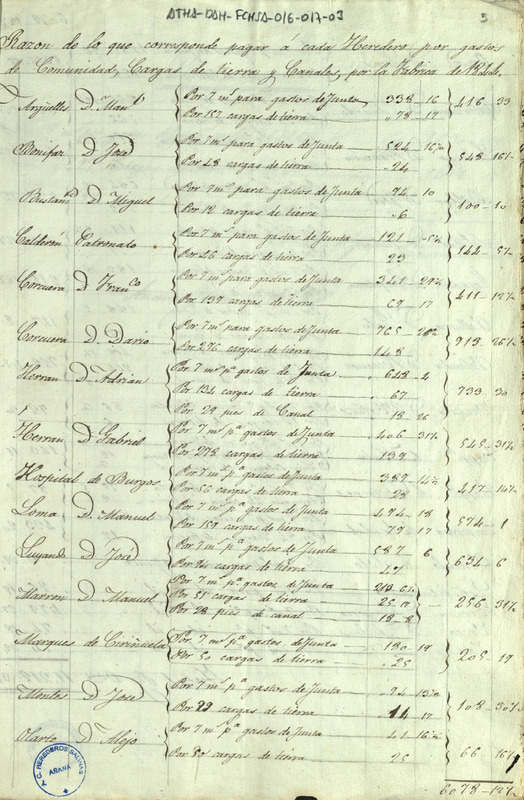 ATHA-DAH-FCHSA-016-017-03
5
Razon de lo que corresponde pagar á cada Heredero por gastos
de Comunidad, Cargas de tierra y Canales, por la Fabrica de 1844.
Argüelles Dn. Manl. Por 7 ms para gastos de Junta 338 16
Por 157 cargas de tierra 78 17 416 33
Bonifaz D José Por 7 ms para gastos de Junta 524 16½
Por 48 cargas de tierra 24 548 16½
D Miguel Por 7 ms para gastos de Junta 94 10
Por 12 cargas de tierra 6 100 10
Calderon Patronato Por 7 ms para gastos de Junta 121 5½
Por 46 cargas de tierra 23 144 5½
Corcuera D Franco Por 7 ms para gastos de Junta 341 29½
Por 139 cargas de tierra 69 17 411 12½
Corcuera D. Dario Por 7 ms para gastos de Junta 765 26½
Por 296 cargas de tierra 148 913 26½
Herran D Adrian Por 7 ms pa gastos de Junta 648 4
Por 134 cargas de tierra 67
Por 29 pies de Canal 18 26 733 30
Herran D Gabriel Por 7 ms pa gastos de Junta 406 31½
Por 278 cargas de tierra 139 545 31½
Hospital de Burgos Por 7 ms pa gastos de Junta 389 14½
Por 56 cargas de tierra 28 417 14½
Loma D. Manuel Por 7 ms pa gastos de Junta 494 18
Por 159 cargas de tierra 79 17 574 1
Luyando D José Por 7 ms pa gastos de Junta 587 6
Por 94 cargas de tierra 47 634 6
Marron D Manuel Por 7 ms pa gastos de Junta
Por 51 cargas de tierra 25 17
Por 28 pies de canal 18 8 256 31½
Marques de Por 7 ms pa gastos de Junta 180 19
Por 50 cargas de tierra 25 205 19
Montes D José Por 7 ms pa gastos de Junta 94 13½
Por 29 cargas de tierra 14 17 108 30½
Olarte Dn Alejo Por 7 ms pa gastos de Junta 41 16½
Por 50 cargas de tierra 25 66 16½
6078 12½
C. HEREDEROS SALINAS
AÑANA